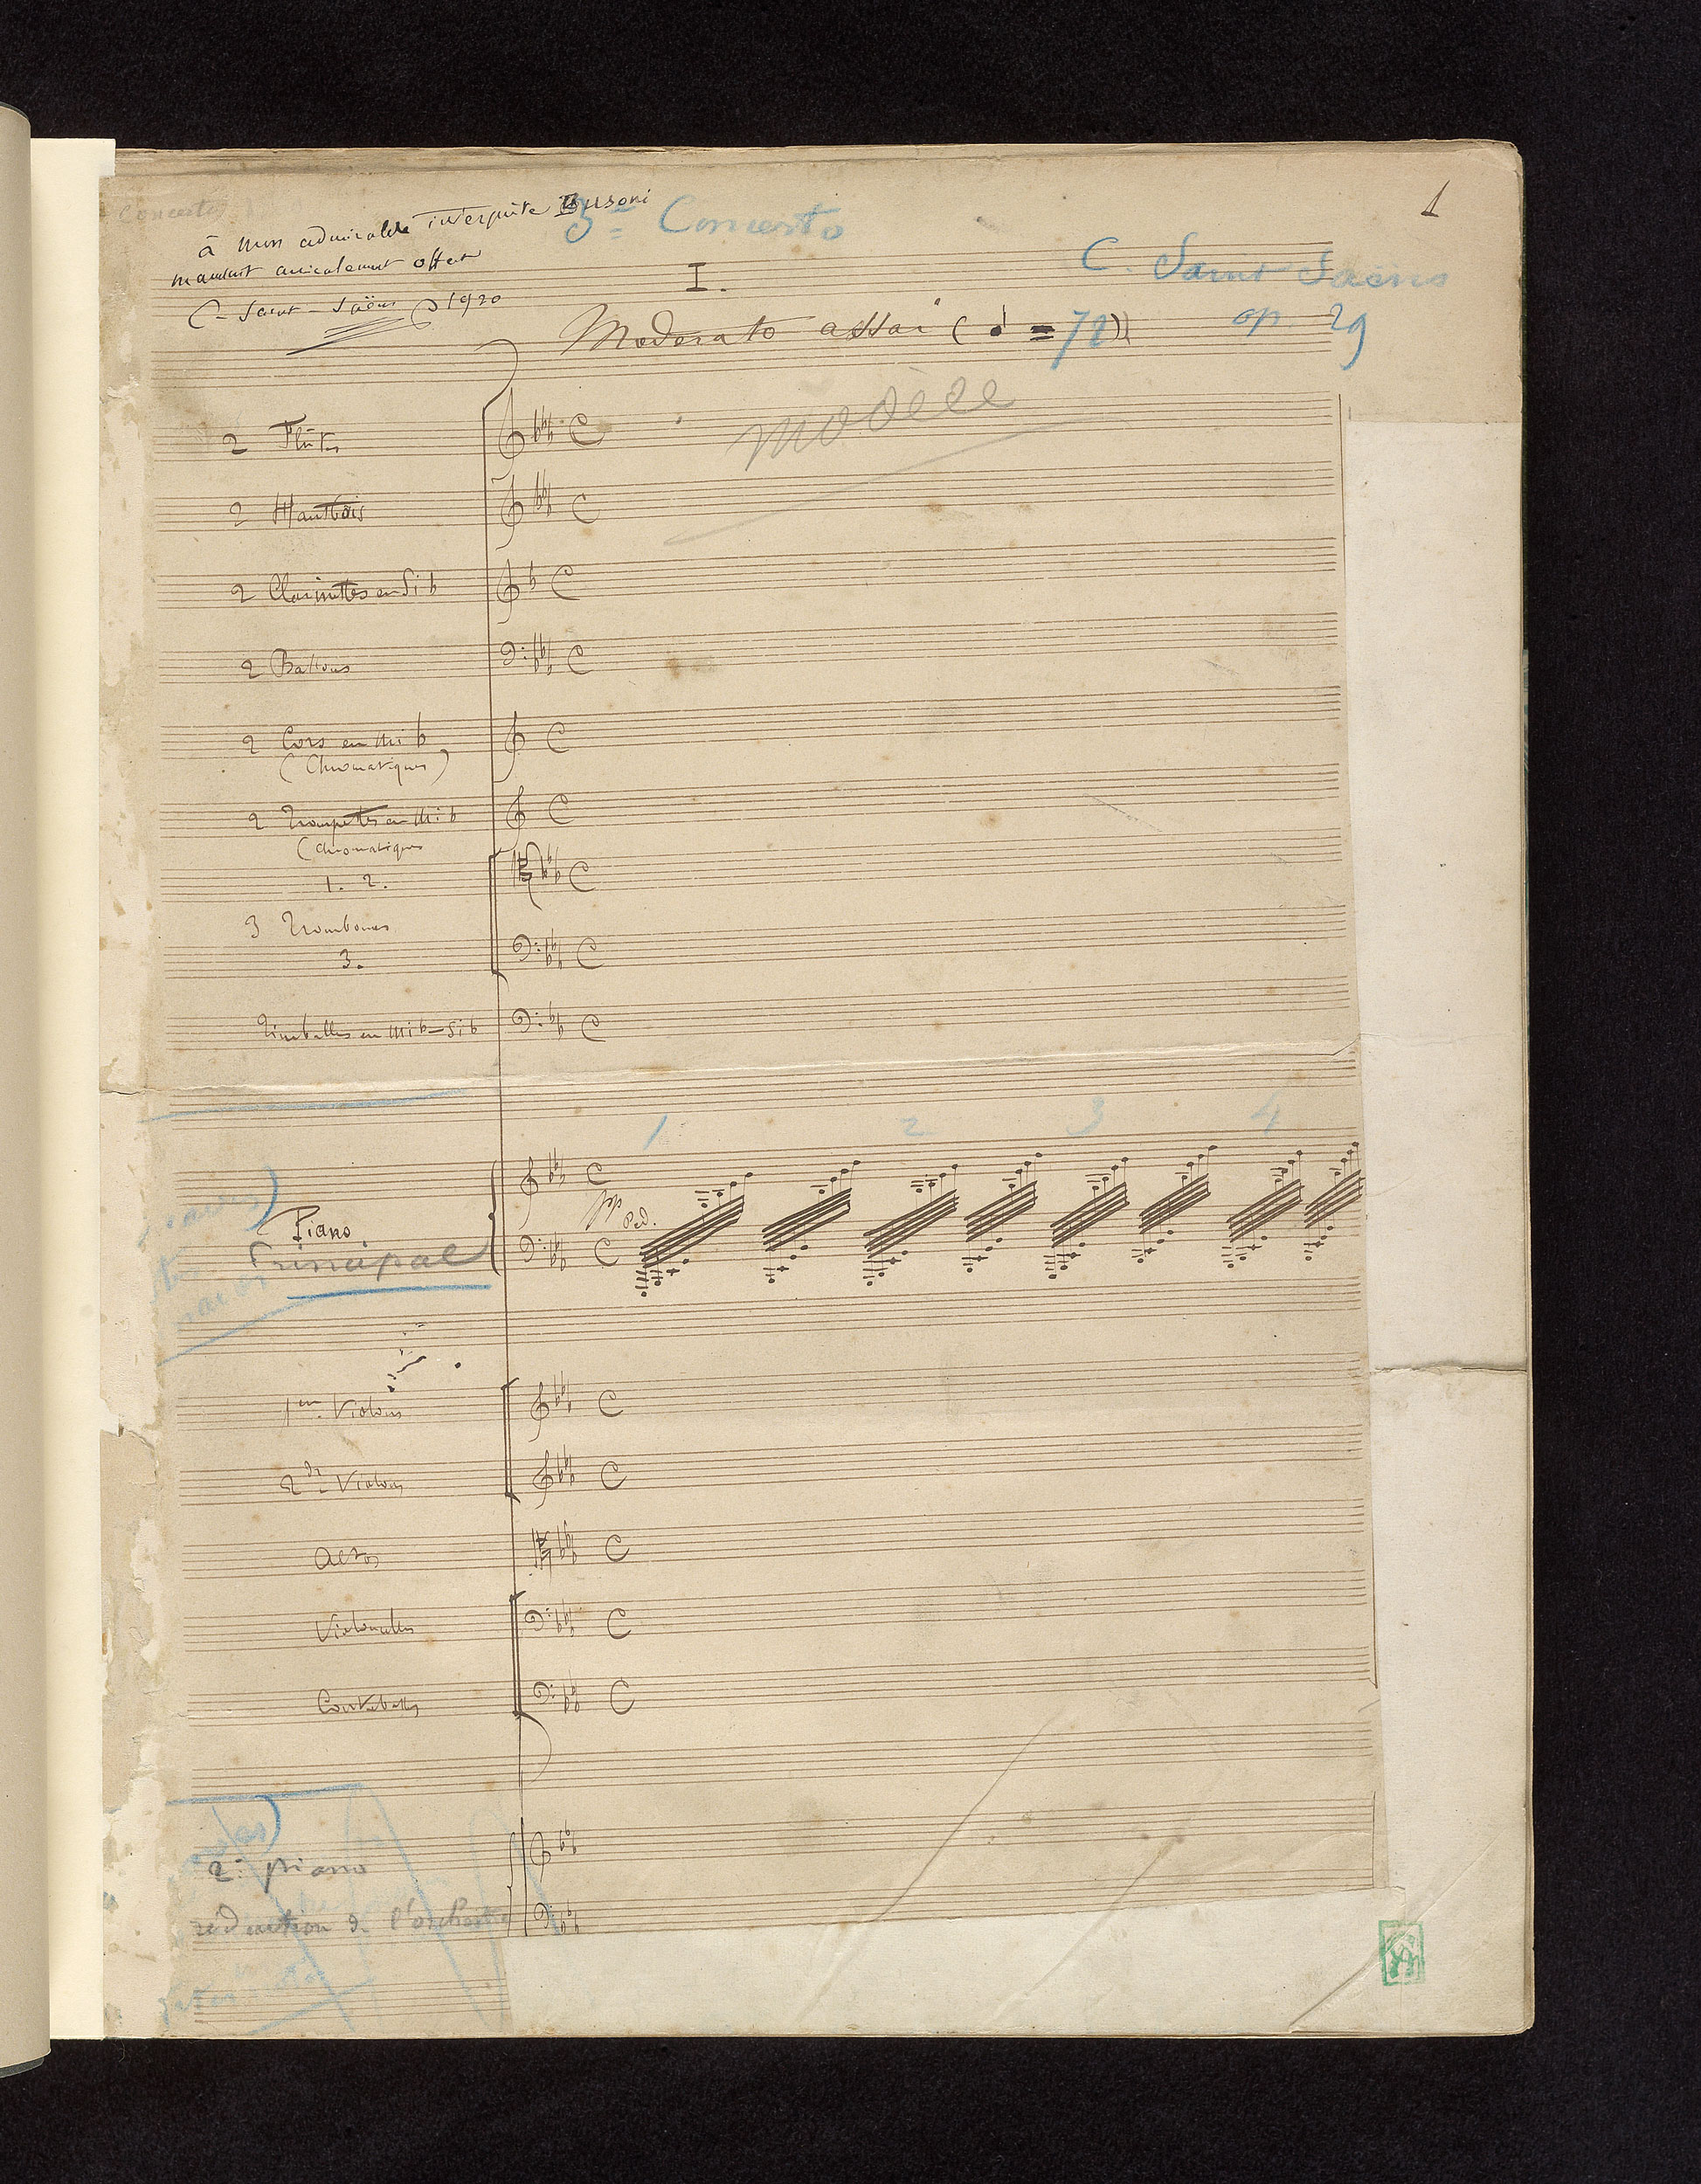 Concerto
1
à mon admirable interprète Busoni
manuscrit amicalement offert
C. Saint-Saëns 1920
3e Concerto
C. Saint Saëns
op 29
I.
Moderato assai (♩ = 72)
modèle
2 Flûtes
2 Hautbois
2 Clarinettes en Si b
2 Bassons
2 Cors en mi b
(Chromatiques)
2 Trompettes en Mi b
(Chromatiques
1. 2.
3 Trombones
3.
Timballes en mi b - si b
1 2 3 4
pp
Ped.
Piano
Principal
1ers Violons
2ds Violons
Altos
Violoncelles
Contrebasses
2e piano
réduction de l'orchestre